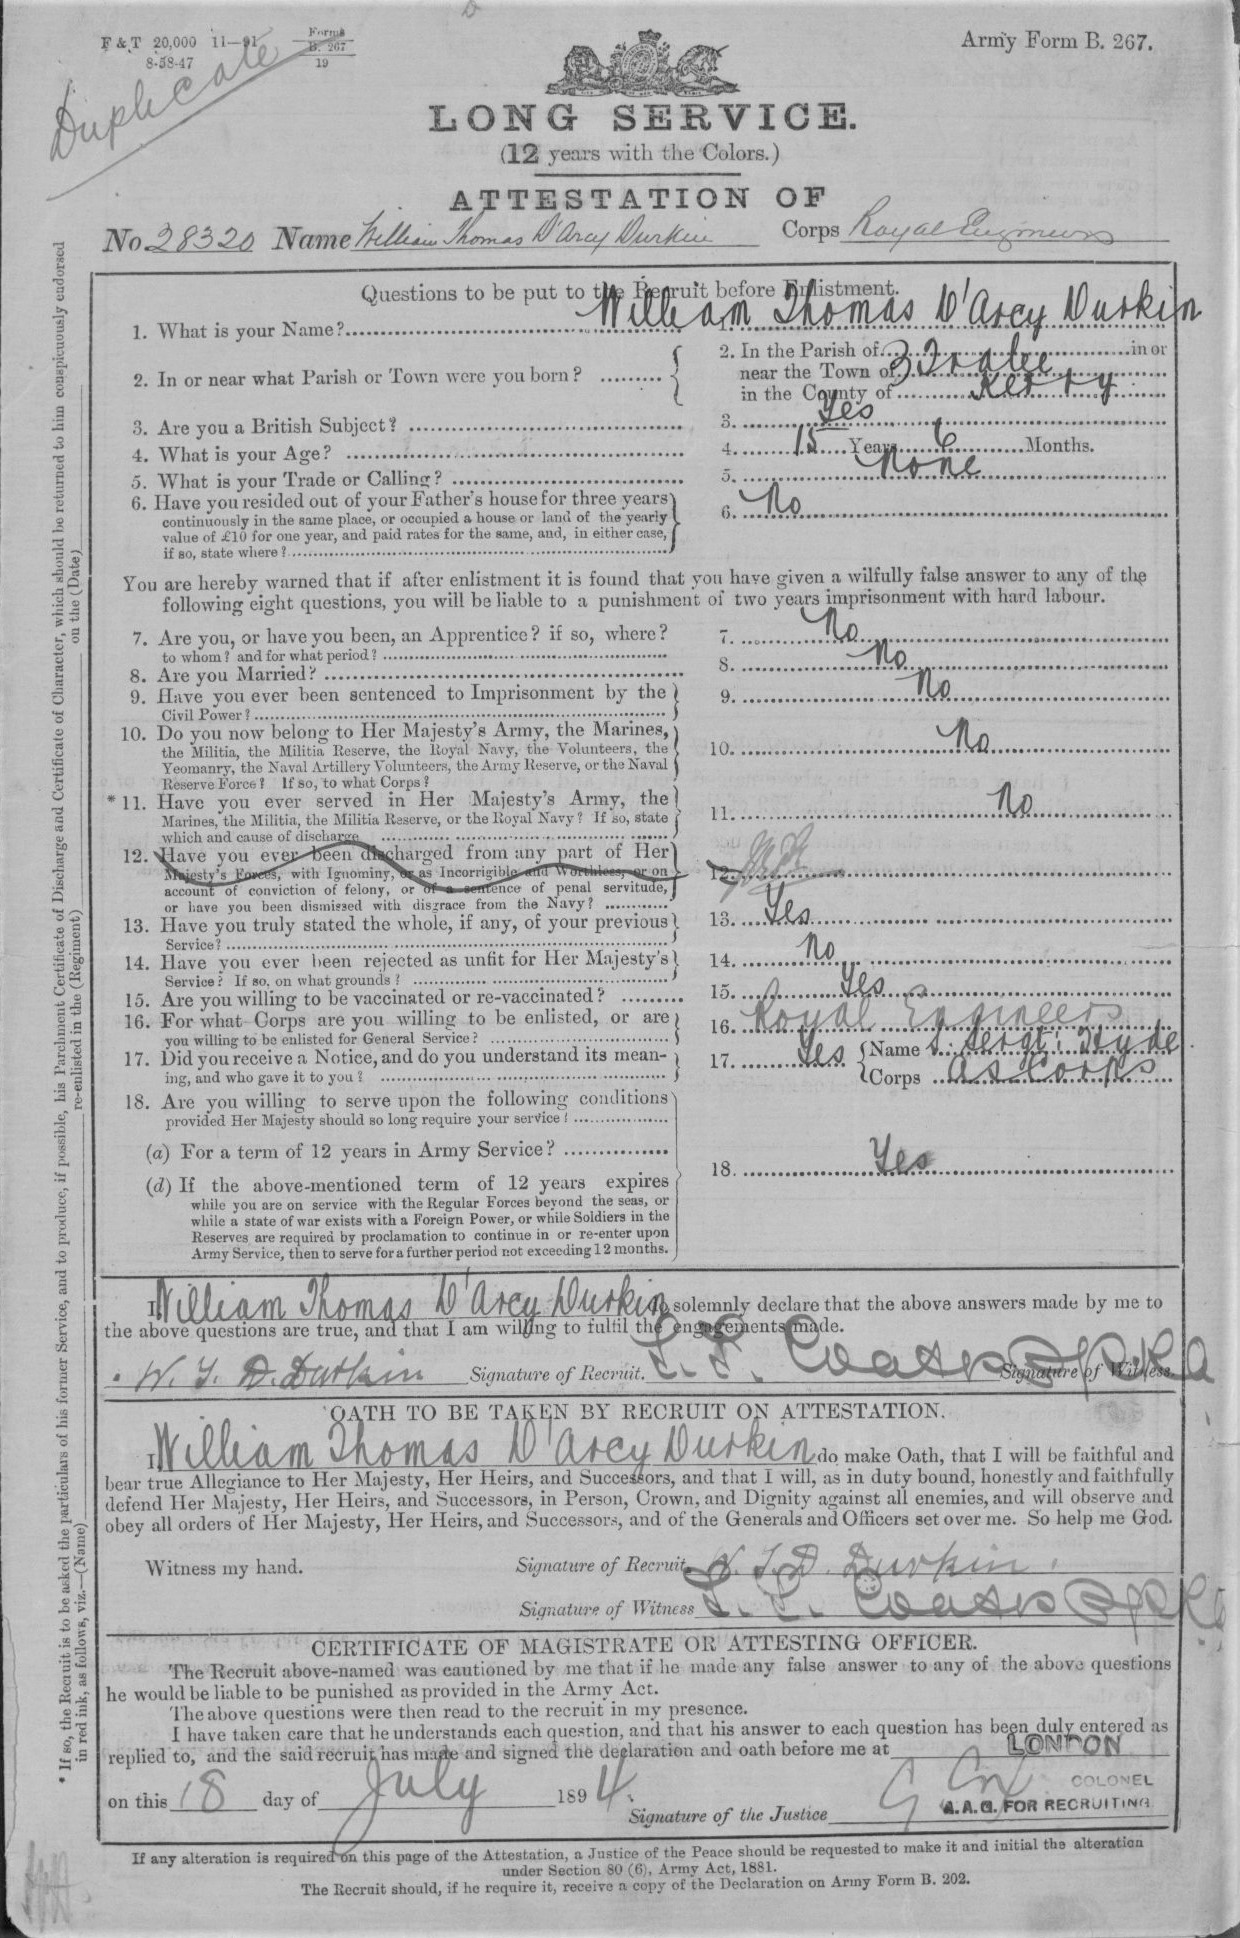 F & T 20,000 11—91 Forms
B. 267
8-58-47 19
Army Form B. 267.
Duplicate
LONG SERVICE.
(12 years with the Colors.)
ATTESTATION OF
No. 28320 Name William Thomas D'Arcy Durkin Corps Royal Engineers
Questions to be put to the Recruit before Enlistment.
1. What is your Name? William Thomas D'Arcy Durkin
2. In or near what Parish or Town were you born? 2. In the Parish of in or
near the Town of Tralee
in the County of Kerry
3. Are you a British Subject? 3. Yes
4. What is your Age? 4. 15 Years 6 Months.
5. What is your Trade or Calling? 5. None
6. Have you resided out of your Father's house for three years
continuously in the same place, or occupied a house or land of the yearly 6. No
value of £10 for one year, and paid rates for the same, and, in either case,
if so, state where?
You are hereby warned that if after enlistment it is found that you have given a wilfully false answer to any of the
following eight questions, you will be liable to a punishment of two years imprisonment with hard labour.
7. Are you, or have you been, an Apprentice? if so, where? 7. No
to whom? and for what period?
8. Are you Married? 8. No
9. Have you ever been sentenced to Imprisonment by the 9. No
Civil Power?
10. Do you now belong to Her Majesty's Army, the Marines,
the Militia, the Militia Reserve, the Royal Navy, the Volunteers, the 10. No
Yeomanry, the Naval Artillery Volunteers, the Army Reserve, or the Naval
Reserve Force? If so, to what Corps?
* 11. Have you ever served in Her Majesty's Army, the
Marines, the Militia, the Militia Reserve, or the Royal Navy? If so, state 11. No
which and cause of discharge
12. Have you ever been discharged from any part of Her
Majesty's Forces, with Ignominy, or as Incorrigible and Worthless, or on 12.
account of conviction of felony, or of a sentence of penal servitude,
or have you been dismissed with disgrace from the Navy?
13. Have you truly stated the whole, if any, of your previous 13. Yes
Service?
14. Have you ever been rejected as unfit for Her Majesty's 14. No
Service? If so, on what grounds?
15. Are you willing to be vaccinated or re-vaccinated? 15. Yes
16. For what Corps are you willing to be enlisted, or are 16. Royal Engineers
you willing to be enlisted for General Service?
17. Did you receive a Notice, and do you understand its mean- 17. Yes Name Sergt: Hyde
ing, and who gave it to you? Corps AS Corps
18. Are you willing to serve upon the following conditions
provided Her Majesty should so long require your service?
(a) For a term of 12 years in Army Service? 18. Yes
(d) If the above-mentioned term of 12 years expires
while you are on service with the Regular Forces beyond the seas, or
while a state of war exists with a Foreign Power, or while Soldiers in the
Reserves are required by proclamation to continue in or re-enter upon
Army Service, then to serve for a further period not exceeding 12 months.
I William Thomas D'Arcy Durkin do solemnly declare that the above answers made by me to
the above questions are true, and that I am willing to fulfil the engagements made.
W. T. D. Durkin Signature of Recruit. Coates Signature of Witness.
OATH TO BE TAKEN BY RECRUIT ON ATTESTATION.
I William Thomas D'Arcy Durkin do make Oath, that I will be faithful and
bear true Allegiance to Her Majesty, Her Heirs, and Successors, and that I will, as in duty bound, honestly and faithfully
defend Her Majesty, Her Heirs, and Successors, in Person, Crown, and Dignity against all enemies, and will observe and
obey all orders of Her Majesty, Her Heirs, and Successors, and of the Generals and Officers set over me. So help me God.
Witness my hand. Signature of Recruit. W. T. D. Durkin.
Signature of Witness Coates
CERTIFICATE OF MAGISTRATE OR ATTESTING OFFICER.
The Recruit above-named was cautioned by me that if he made any false answer to any of the above questions
he would be liable to be punished as provided in the Army Act.
The above questions were then read to the recruit in my presence.
I have taken care that he understands each question, and that his answer to each question has been duly entered as
replied to, and the said recruit has made and signed the declaration and oath before me at LONDON
on this 18 day of July 1894.
COLONEL
Signature of the Justice A.A.G. FOR RECRUITING.
If any alteration is required on this page of the Attestation, a Justice of the Peace should be requested to make it and initial the alteration
under Section 80 (6), Army Act, 1881.
The Recruit should, if he require it, receive a copy of the Declaration on Army Form B. 202.
* If so, the Recruit is to be asked the particulars of his former Service, and to produce, if possible, his Parchment Certificate of Discharge and Certificate of Character, which should be returned to him conspicuously endorsed
in red ink, as follows, viz.—(Name) re-enlisted in the (Regiment) on the (Date)